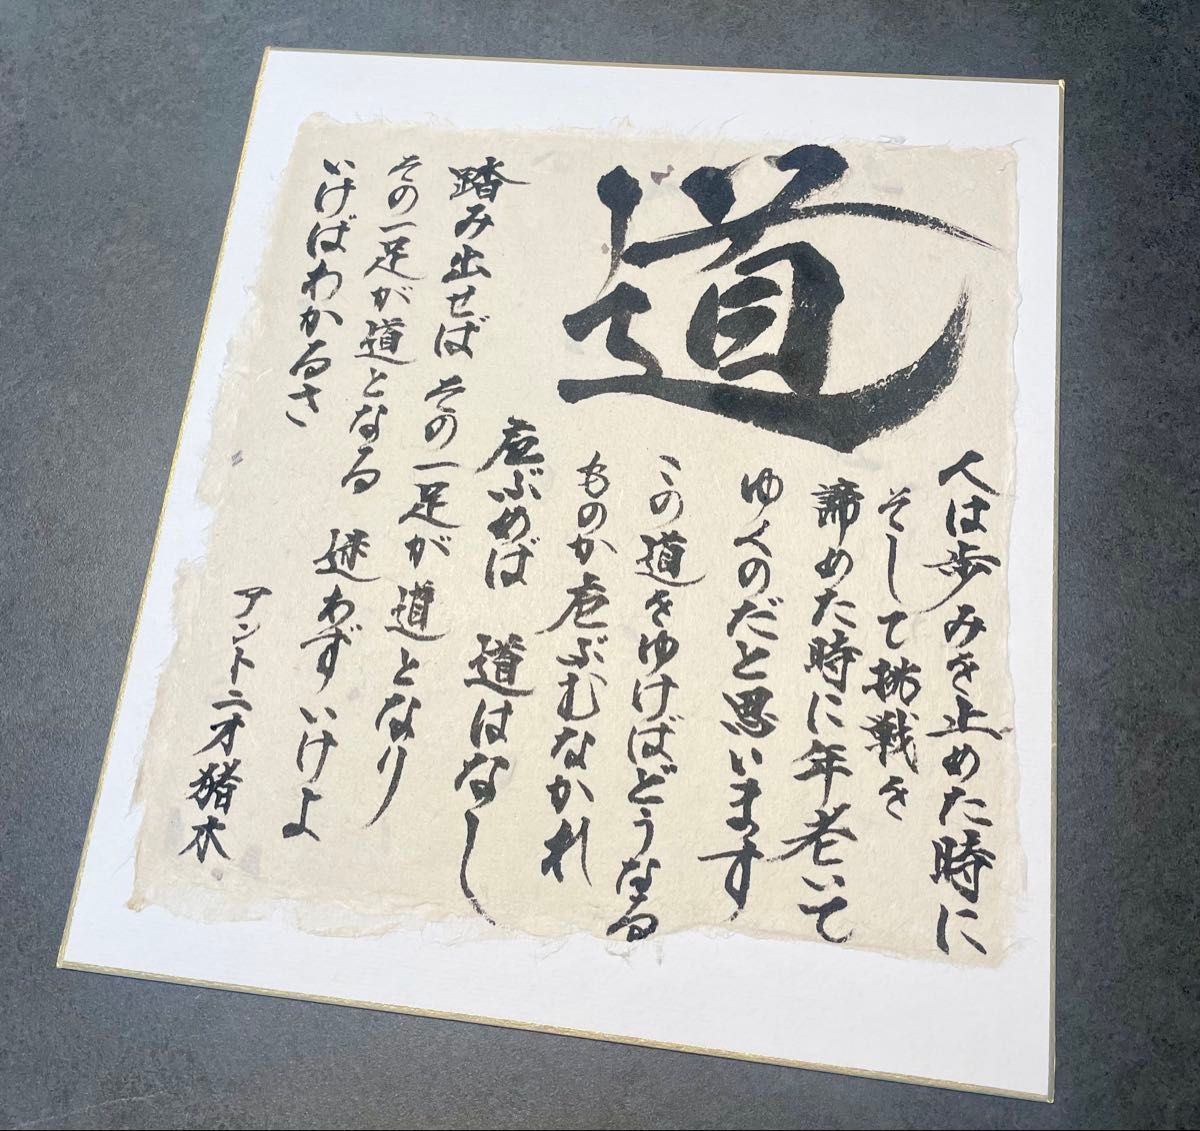 道
人は歩みを止めた時に
そして挑戦を
諦めた時に年老いて
ゆくのだと思います
この道をゆけばどうなる
ものか危ぶむなかれ
危ぶめば 道はなし
踏み出せば その一足が 道となり
その一足が道となる 迷わず いけよ
いけばわかるさ
アントニオ猪木